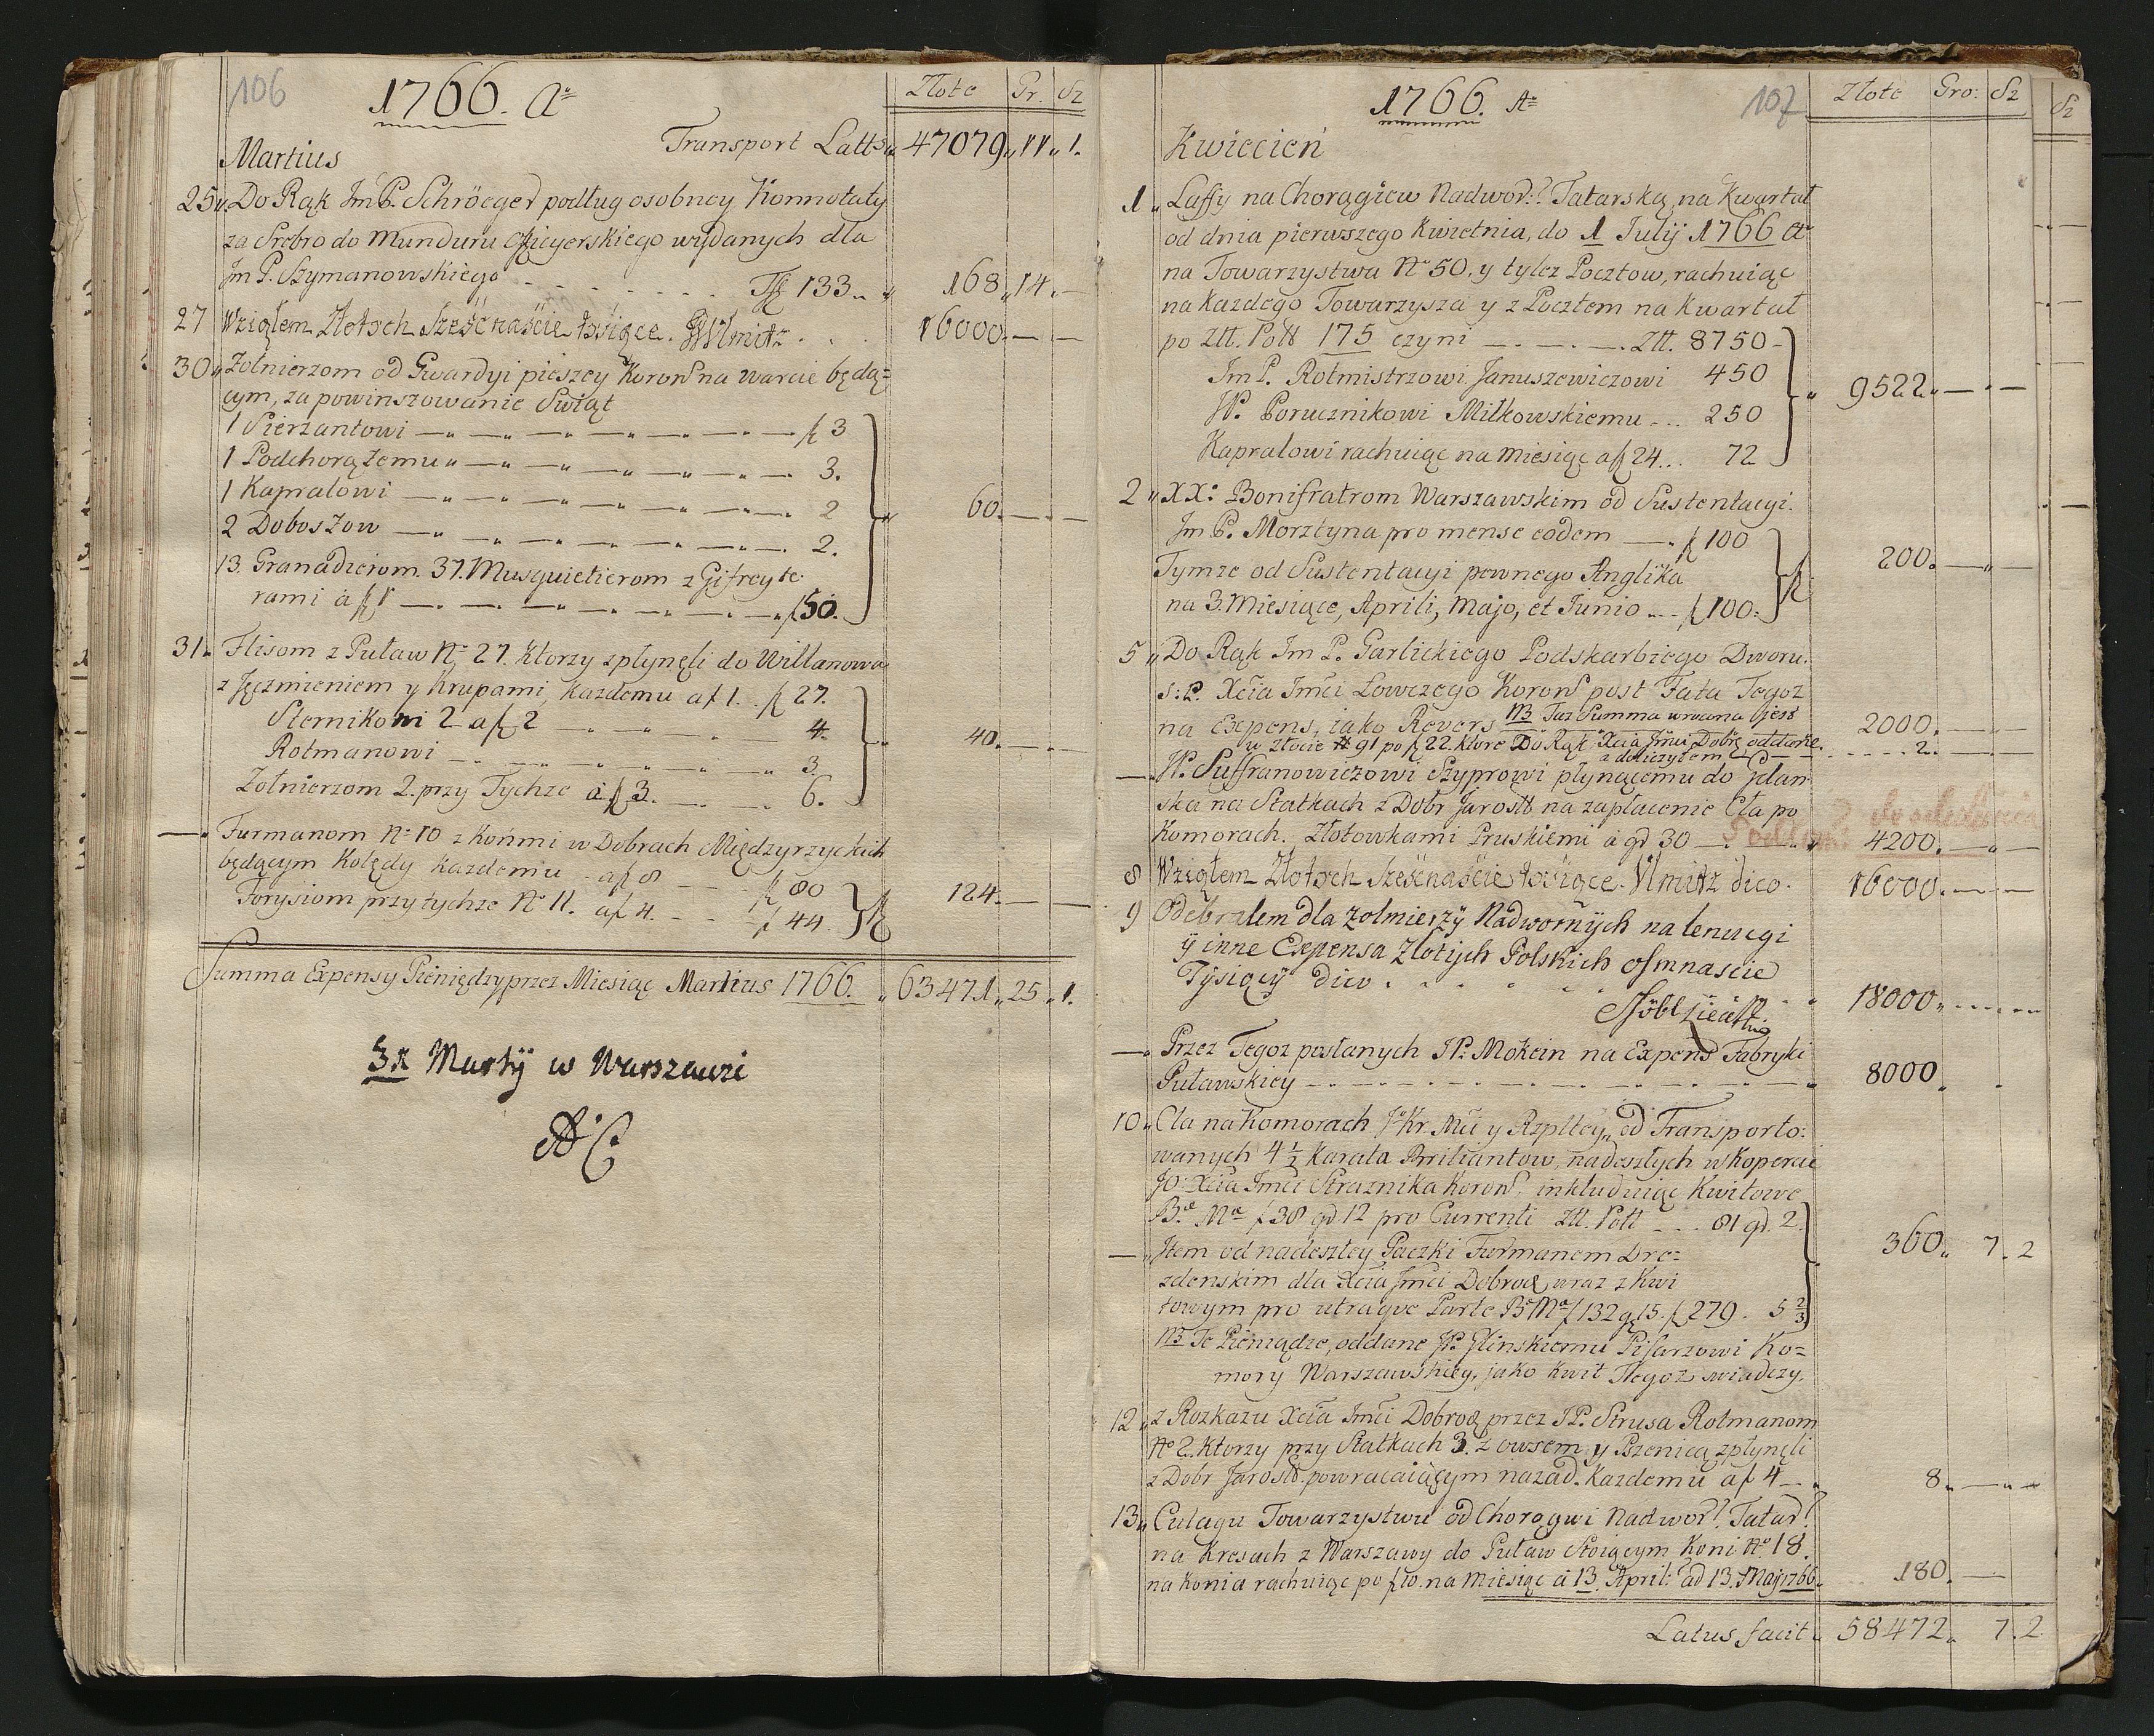 106
1766. Ao
Złote Gr. Sz
Transport Latt. 47079 „ 11 „ 1.
Martius
25 „ Do Rąk Im P. Schröeger podług osobney Konnotaty
za Srebro do Munduru Oficyerskiego wydanych dla
Im P. Szymanowskiego - - - - - 133 „ 168 „ 14. —
27 Wziąłem Złotych Sześćnaście tysięce. . . . 16000. — —
30 „ Zołnierzom od Gwardyi pieszey Koron na warcie będą=
cym, za powinszowanie Swiąt
1 Sierzantowi — „ — „ — f 3
1 Podchorązemu „ — „ — „ 3.
1 Kapralowi — „ — „ — „ 2
60. — —
2 Doboszow — „ — „ — „ 2.
13. Granadierom. 37. Musquietierom z Gifreyte
rami a f 1 — „ — „ — f 50.
31. Flisom z Puław No 27. ktorzy spłynęli do Willanowa
z Jęczmieniem y Krupami, kazdemu a f 1. f 27.
Sternikowi 2 a f 2 „ „ 4.
Rotmanowi — „ — „ 3.
40. — —
Zołnierzom 2. przy Tychze a f 3. — — 6.
— „ Furmanom No 10 z Końmi w Dobrach Międzyrzyckich
będącym Kolędy kazdemu a f 8 - - f 80
124. — —
Forysiom przy tychze No 11. a f 4. - - f 44
Summa Expensy Pieniędzy przez Miesiąc Martius 1766. „ 63471 „ 25 „ 1.
31 Martÿ w Warszawi
AC
107
1766. Ao
Złote Gro: Sz
Sz
Kwiecień
1 „ Laffy na Chorągiew Nadwor: Tatarską, na Kwartał
od dnia pierwszego Kwietnia, do 1 Julÿ 1766 A
na Towarzystwa No 50. y tylez Pocztow, rachuiąc
na kazdego Towarzysza y z Pocztem na Kwartał
po Złt. Poll 175 czyni — — — Złt. 8750 -
Im P. Rotmistrzowi Januszewiczowi 450
9522 „ — —
JP. Porucznikowi Miłkowskiemu - .. 250
Kapralowi rachuiąc na miesiąc a f 24 . . . 72
2 „ XX: Bonifratrom Warszawskim od Sustentacyi
Im P. Morztyna pro mense eodem — . f 100
200. — —
Tymze od Sustentacyi pewnego Anglika
na 3. Miesiące, Aprili, Majo, et Junio .. - f 100.
5 „ Do Rąk Im P. Garlickiego Podskarbiego Dworu.
s: P. Xcia Imci Łowczego Koron post Fata Tegoz
na Expens, iako Rewers NB Taz Summa wrocona jest 2000. — —
w Złocie # 91 po f 22. ktore Do Rąk Xcia Jmci Dobrę oddane. - - - 2. —
a doliczyłem
— „ JP. Suffranowiczowi Szyprowi płynącemu do Gdan
ska na Statkach z Dobr Jarosł na zapłacenie Cła po
Komorach. Złotowkami Pruskiemi a gr 30 — „ 4200. — —
8 Wziąłem Złotych Sześćnaście tysięce. dico. 16000. — —
9 Odebrałem dla zolnierzy Nadwornÿch na lenungi
ÿ inne Expensa Złotÿch Polskich osmnascie
Tÿsięcÿ dico . . . . 18000 „ - - -
— „ Przez Tegoz posłanych JP. Mokein na Expens Fabryki
Puławskiey - - - - - - - „ 8000 „
10 „ Cła na Komorach J Kr. Mci y Rzpltey „ od Transporto:
wanych 4 1/2 Karata Bryliantow, nadeszłych w Kopercie
JO: Xcia Imci Straznika Koron. inkluduiąc Kwitowe
f 38 gr 12 pro Currenti Złt. Poll - - . 81 gr. 2.
— „ Item od nadeszłey Paczki Furmanem Dre=
360 „ 7. 2
zdenskim dla Xcia Jmci Dobrod wraz z Kwi
towym pro utraque Parte f 132 gr 15. f 279. 5 2/3
NB Te Pieniądze, oddane JP. Glinskiemu Pisarzowi Ko=
mory Warszawskiey, jako kwit Tegoz swiadczy.
12 „ z Rozkazu Xcia Imci Dobrod przez JP. Strusa Rotmanom
No 2. ktorzy przy Statkach 3. z owsem y Pszenicą spłynęli
z Dobr Jarosł. powracaiącym nazad. Kazdemu a f 4 — „ 8. — —
13 „ Culagu Towarzystwu od Chorągwi Nadwor. Tatar.
na Kresach z Warszawy do Puław Stoiącym Koni No 18.
na konia rachuiąc po f 10. na Miesiąc a 13. April: ad 13. Maij 1766. 180. —
Latus facit „ 58472 „ 7. 2